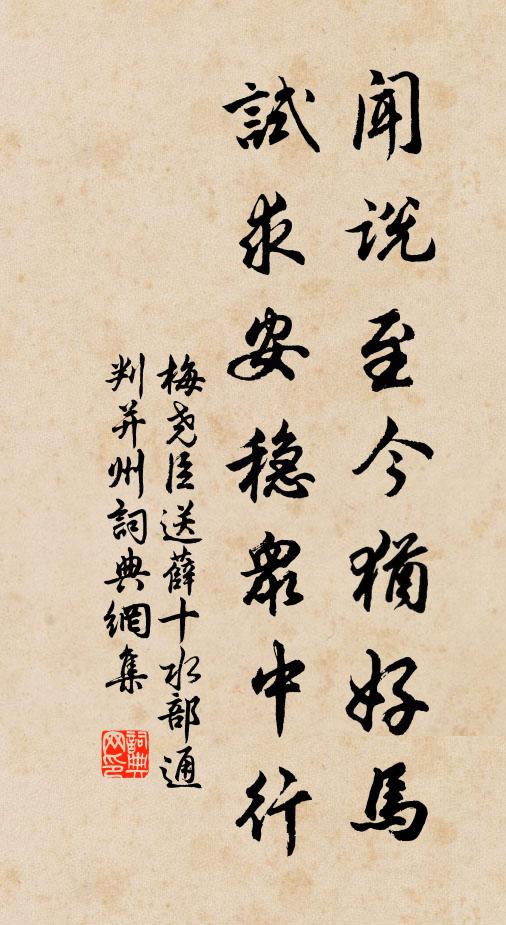 闻说至今猶好馬
試求安穩眾中行
梅尧臣送薛十水部通
判并州詞典網集
詞典
网印